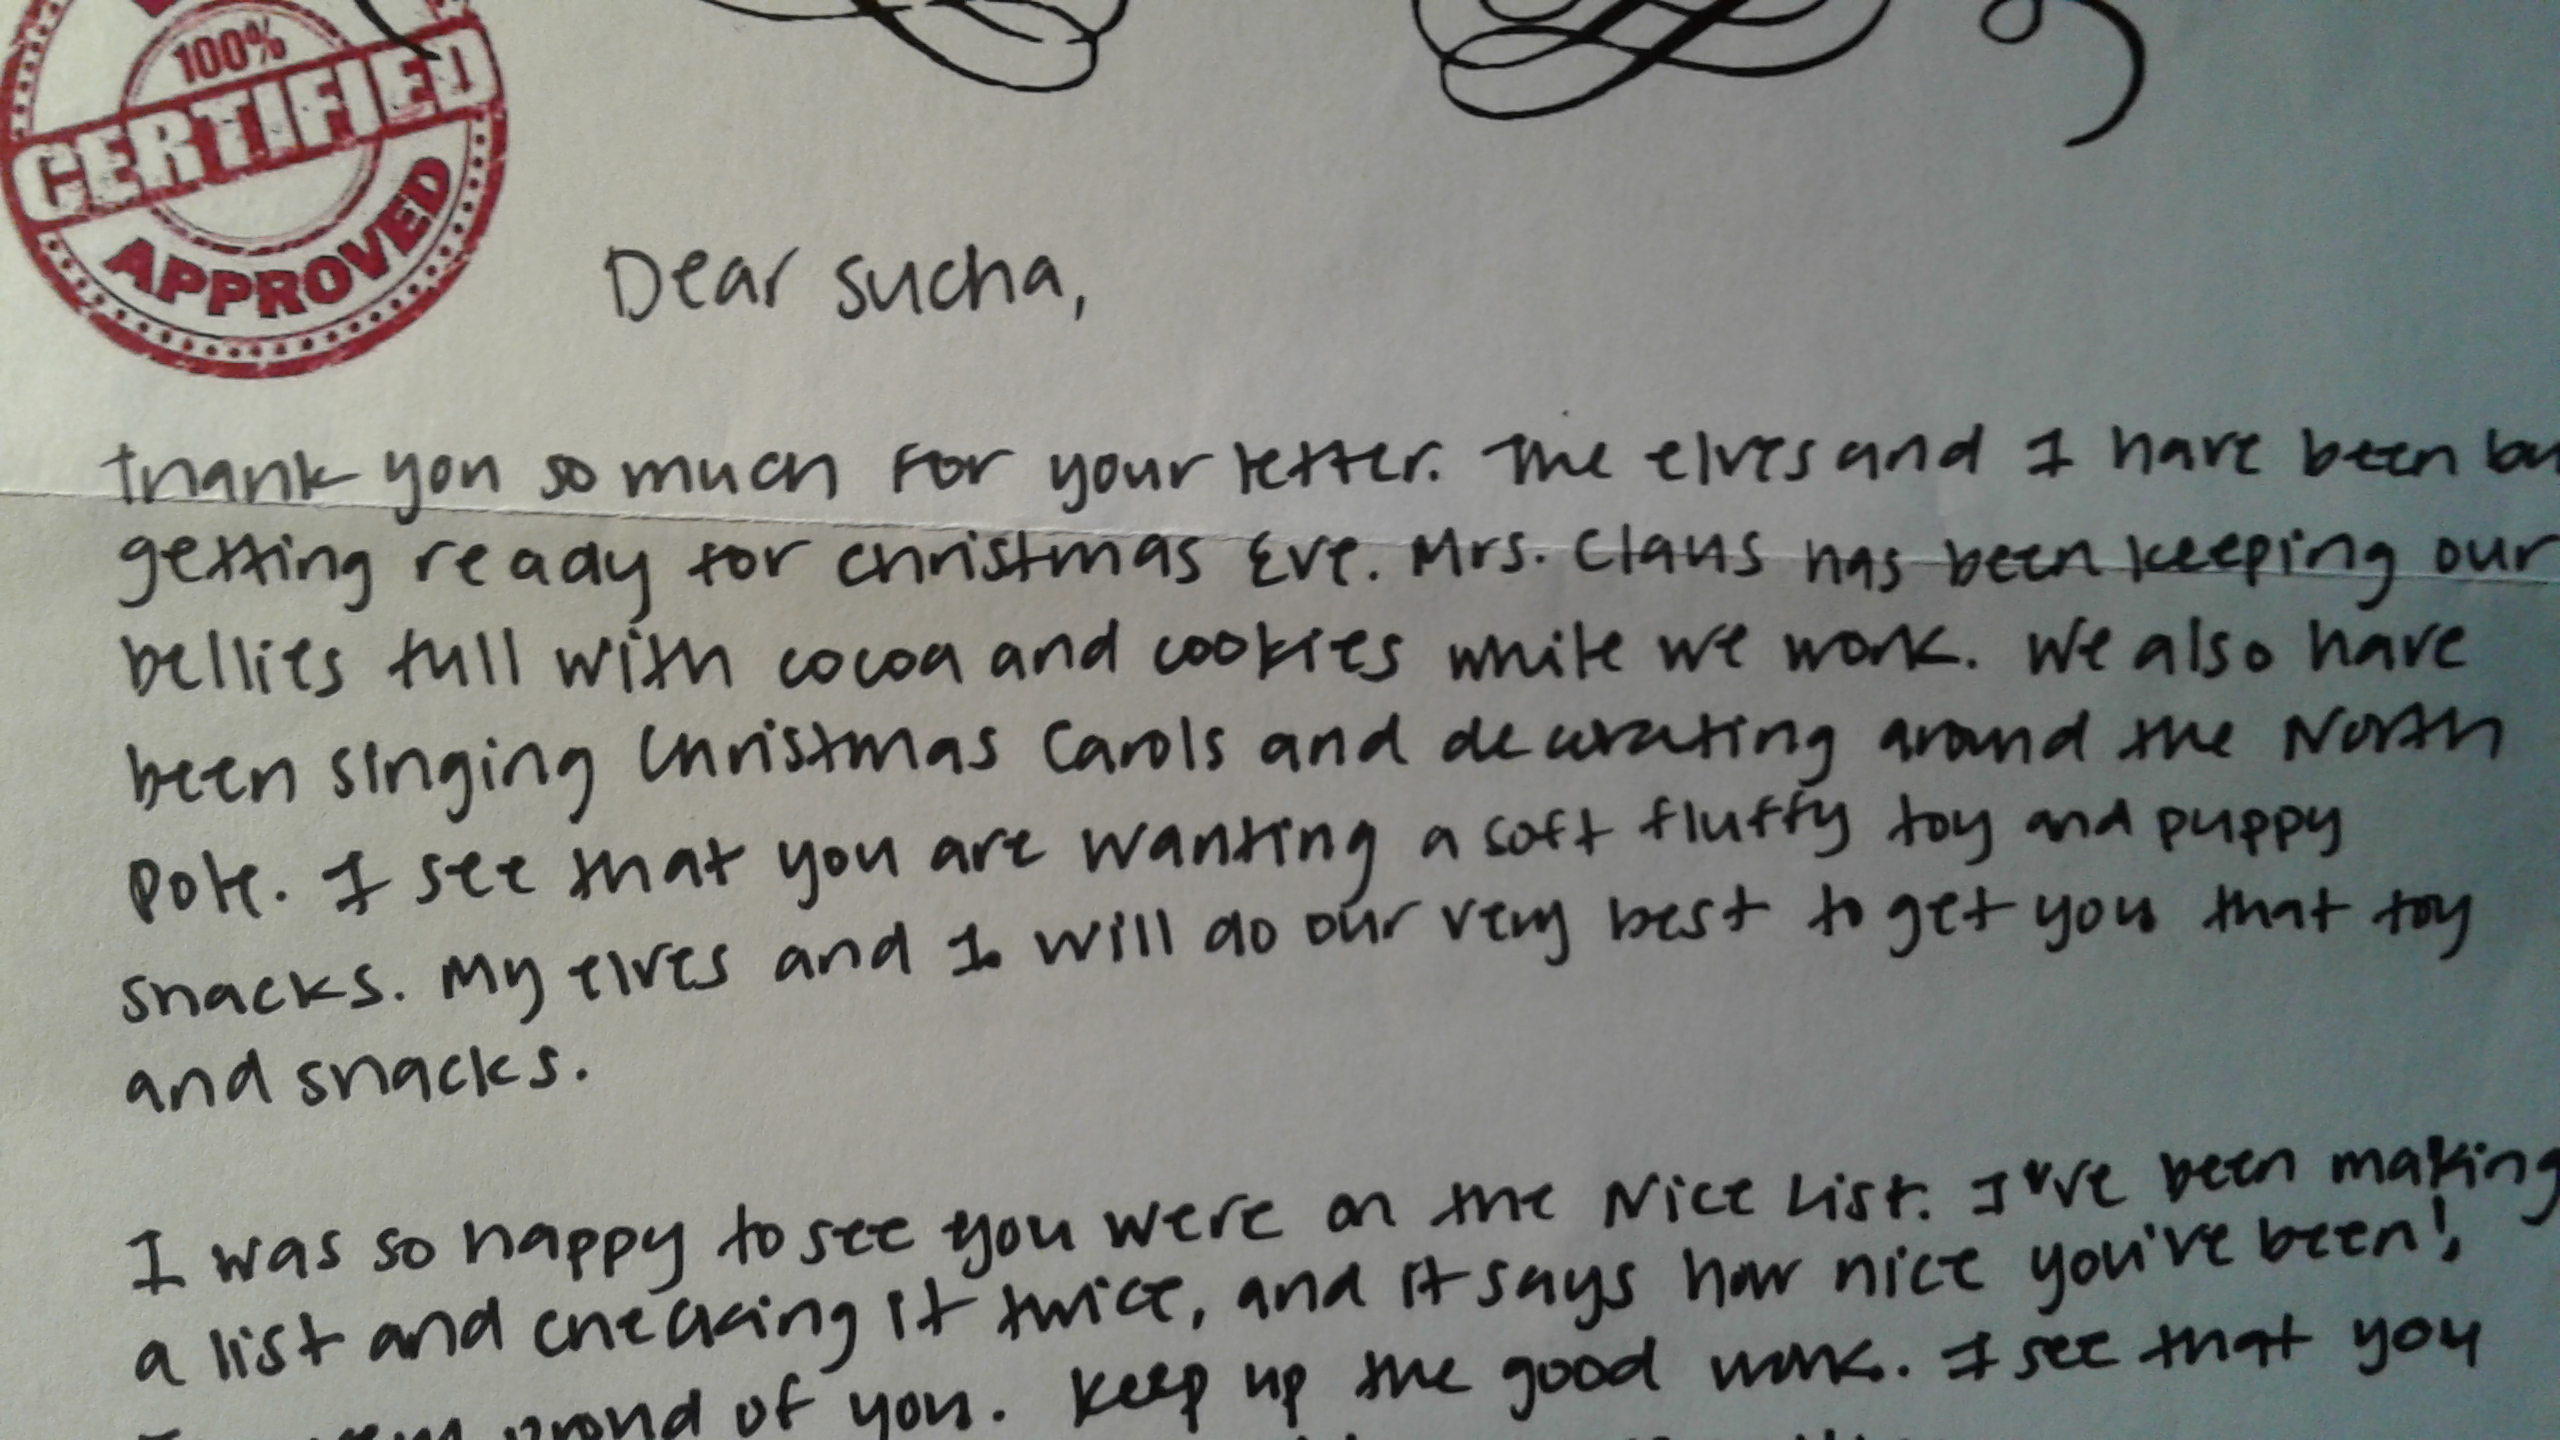 100%
CERTIFIED
APPROVED
Dear Sucha,
Thank you so much for your letter. The elves and I have been bu
getting ready for Christmas Eve. Mrs. Claus has been keeping our
bellies full with cocoa and cookies while we work. We also have
been singing Christmas Carols and decorating around the North
Pole. I see that you are wanting a soft fluffy toy and puppy
snacks. My elves and I will do our very best to get you that toy
and snacks.
I was so happy to see you were on the Nice List. I've been making
a list and checking it twice, and it says how nice you've been!
proud of you. Keep up the good work. I see that you